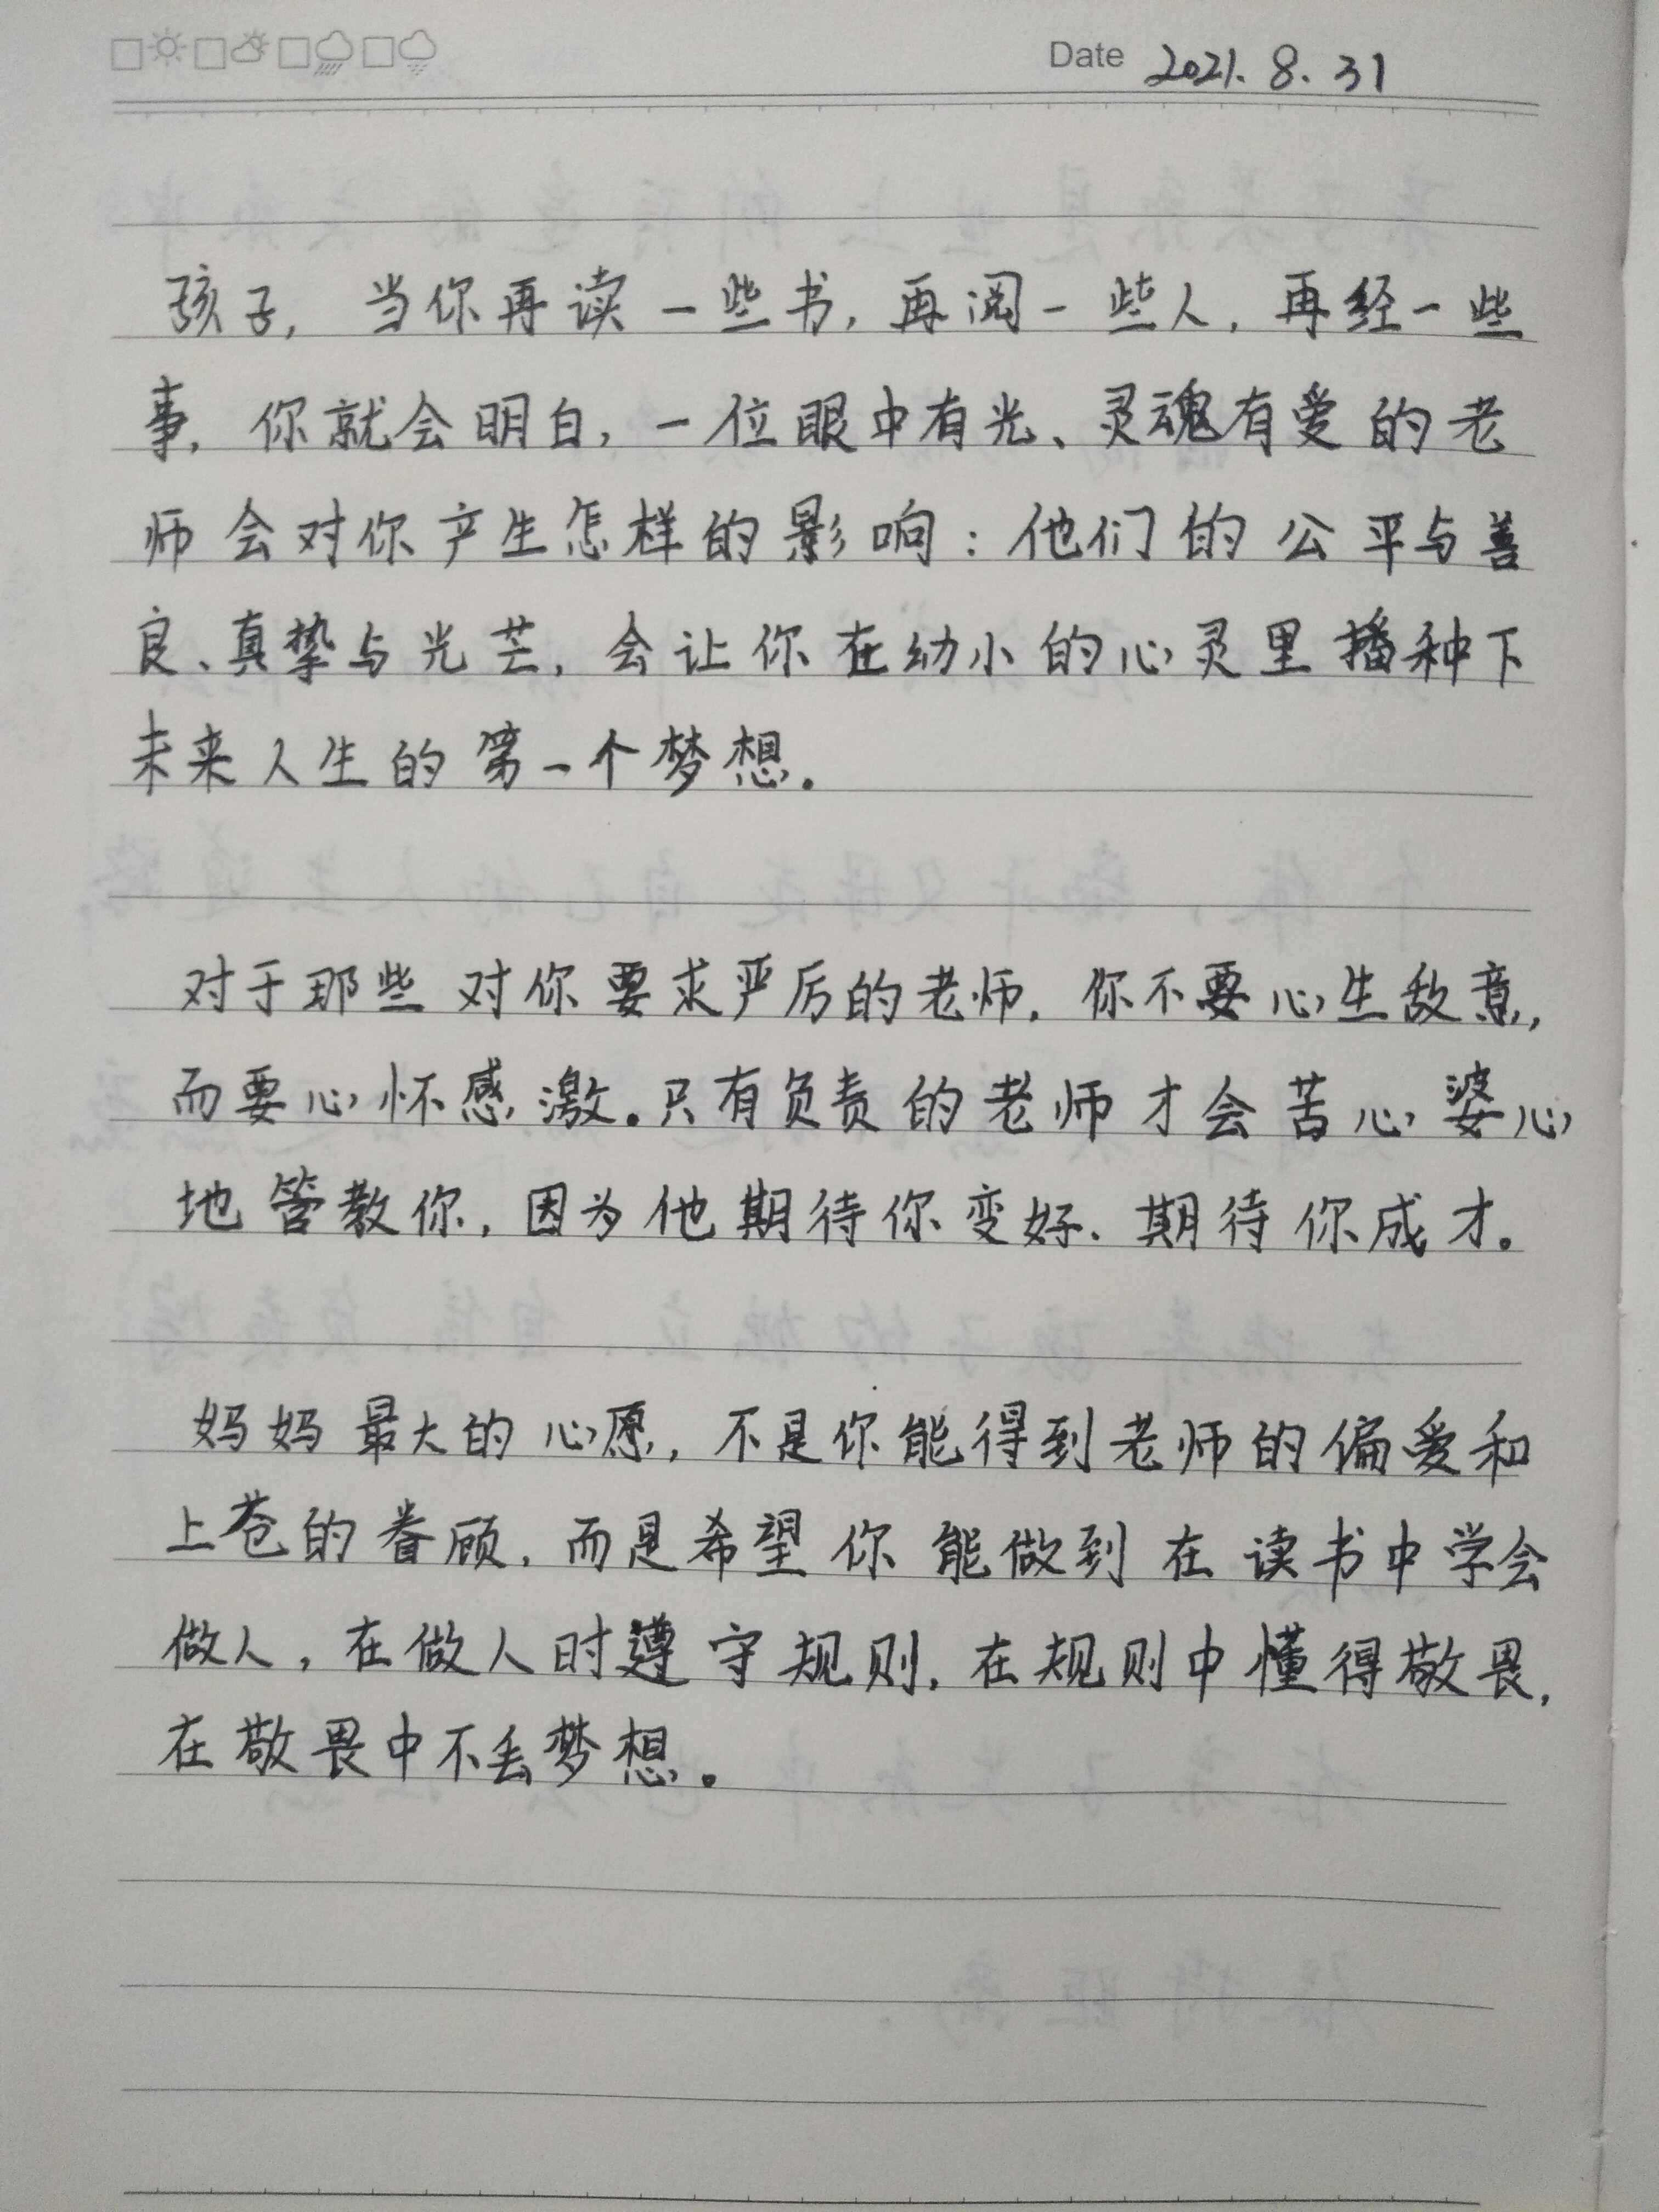 Date 2021.8.31
孩子，当你再读一些书，再阅一些人，再经一些
事，你就会明白，一位眼中有光、灵魂有爱的老
师会对你产生怎样的影响：他们的公平与善
良、真挚与光芒，会让你在幼小的心灵里播种下
未来人生的第一个梦想。
对于那些对你要求严厉的老师，你不要心生敌意，
而要心怀感激。只有负责的老师才会苦心婆心
地管教你，因为他期待你变好、期待你成才。
妈妈最大的心愿，不是你能得到老师的偏爱和
上苍的眷顾，而是希望你能做到在读书中学会
做人，在做人时遵守规则，在规则中懂得敬畏，
在敬畏中不丢梦想。